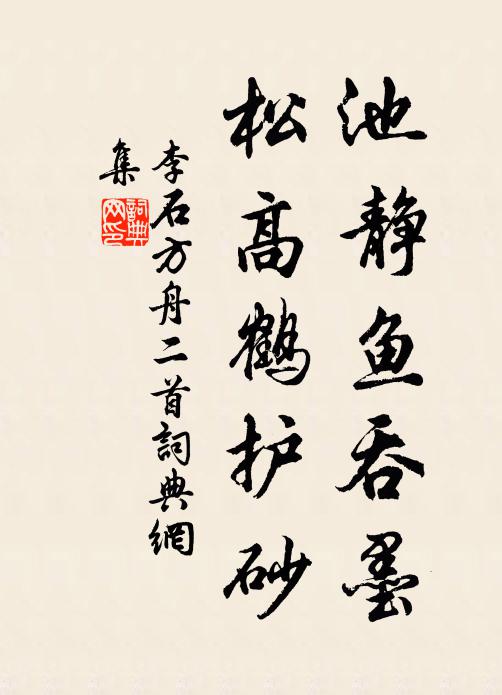 池静鱼吞墨
松高鹤护砂
李石方舟二首詞典網
集
詞典網印